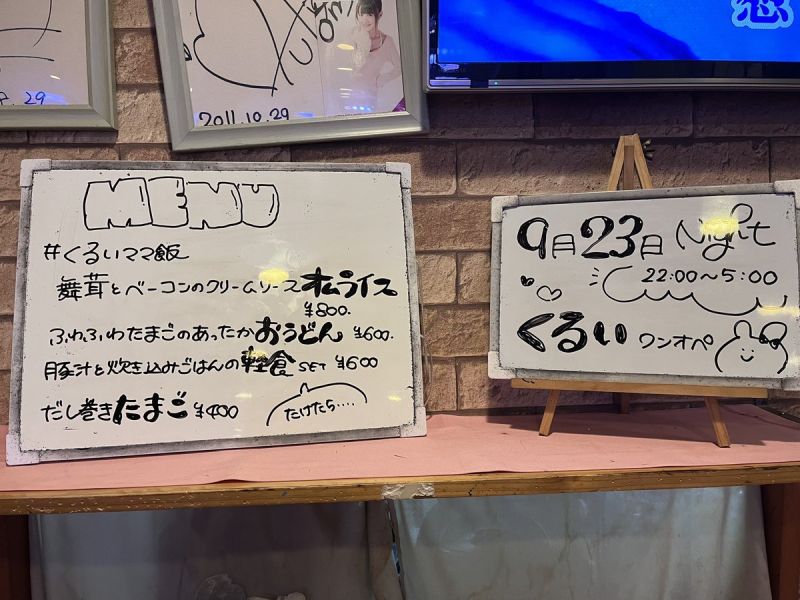 9.29
2011.10.29
MENU
#くるいママ飯
舞茸とベーコンのクリームソースオムライス
¥800.
ふわふわたまごのあったかおうどん ¥600.
豚汁と炊き込みごはんの軽食SET ¥600
だし巻きたまご ¥400
たけたら....
9月23日 Night
22:00～5:00
くるい ワンオペ